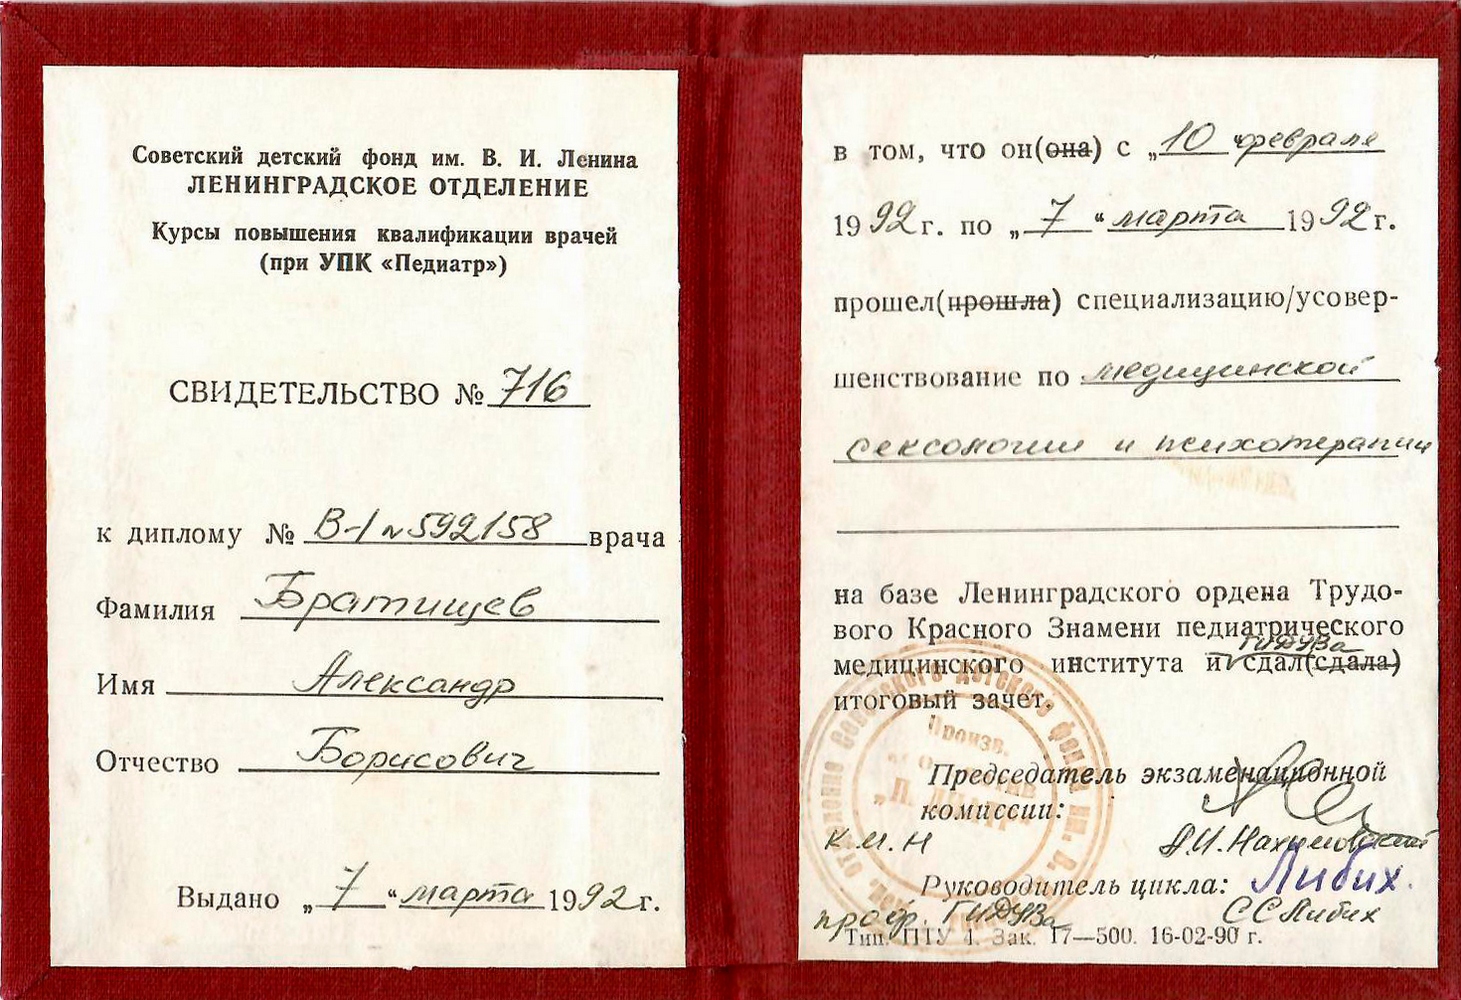 Советский детский фонд им. В. И. Ленина
ЛЕНИНГРАДСКОЕ ОТДЕЛЕНИЕ
Курсы повышения квалификации врачей
(при УПК «Педиатр»)
СВИДЕТЕЛЬСТВО № 716
к диплому № В-I № 592158 врача
Фамилия Братищев
Имя Александр
Отчество Борисович
Выдано „7“ марта 1992 г.
в том, что он(она) с „10“ февраля
1992 г. по „7“ марта 1992 г.
прошел(прошла) специализацию/усовер-
шенствование по медицинской
сексологии и психотерапии
на базе Ленинградского ордена Трудо-
вого Красного Знамени педиатрического
ГИДУВа
медицинского института и сдал(сдала)
итоговый зачет.
Председатель экзаменационной
комиссии:
к.м.н А.И. Нахимовский
Руководитель цикла: Либих.
проф. ГИДУВа С С Либих
Тип. ПТУ 4. Зак. 17—500. 16-02-90 г.